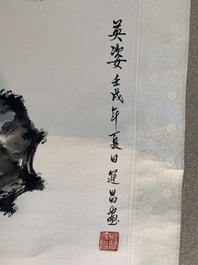 英姿 壬戌年夏日運昌畫